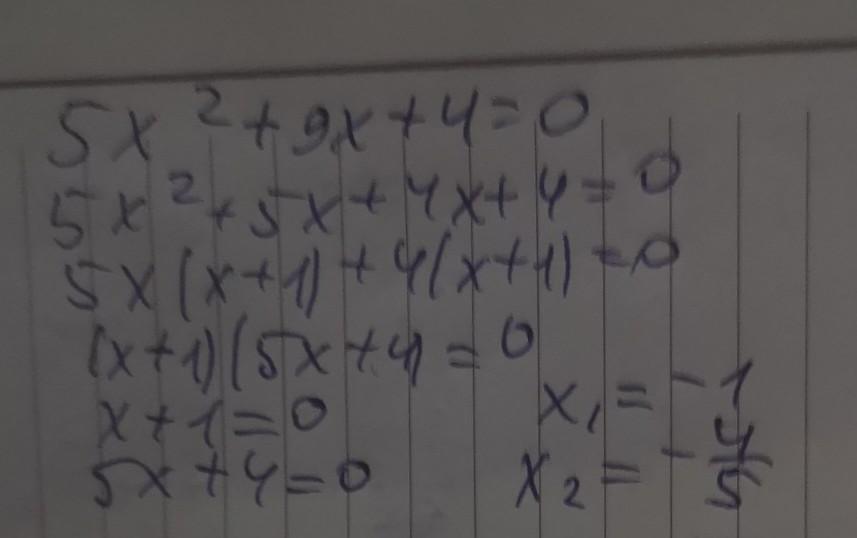 5x² + 9x + 4 = 0
5x² + 5x + 4x + 4 = 0
5x(x+1) + 4(x+1) = 0
(x+1)(5x+4) = 0
x + 1 = 0
5x + 4 = 0
x₁ = -1
x₂ = -4/5